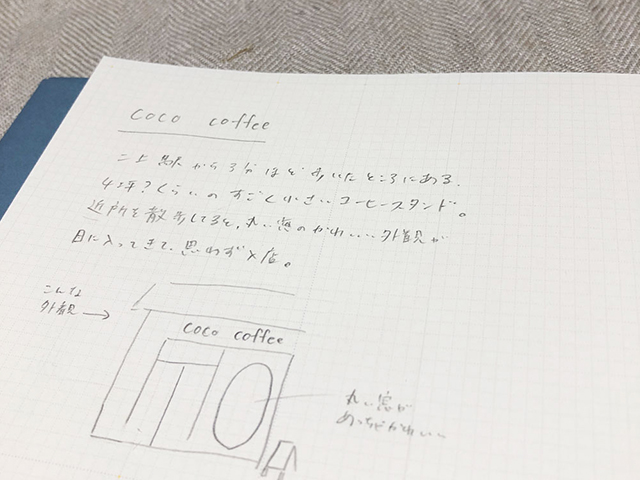 coco coffee
二上駅から3分ほど歩いたところにある、
4坪?くらいのすごく小さいコーヒースタンド。
近所を散歩してると、丸い窓のかわいい外観が
目に入ってきて、思わず入店。
こんな
外観→
coco coffee
丸い窓が
めっちゃかわいい